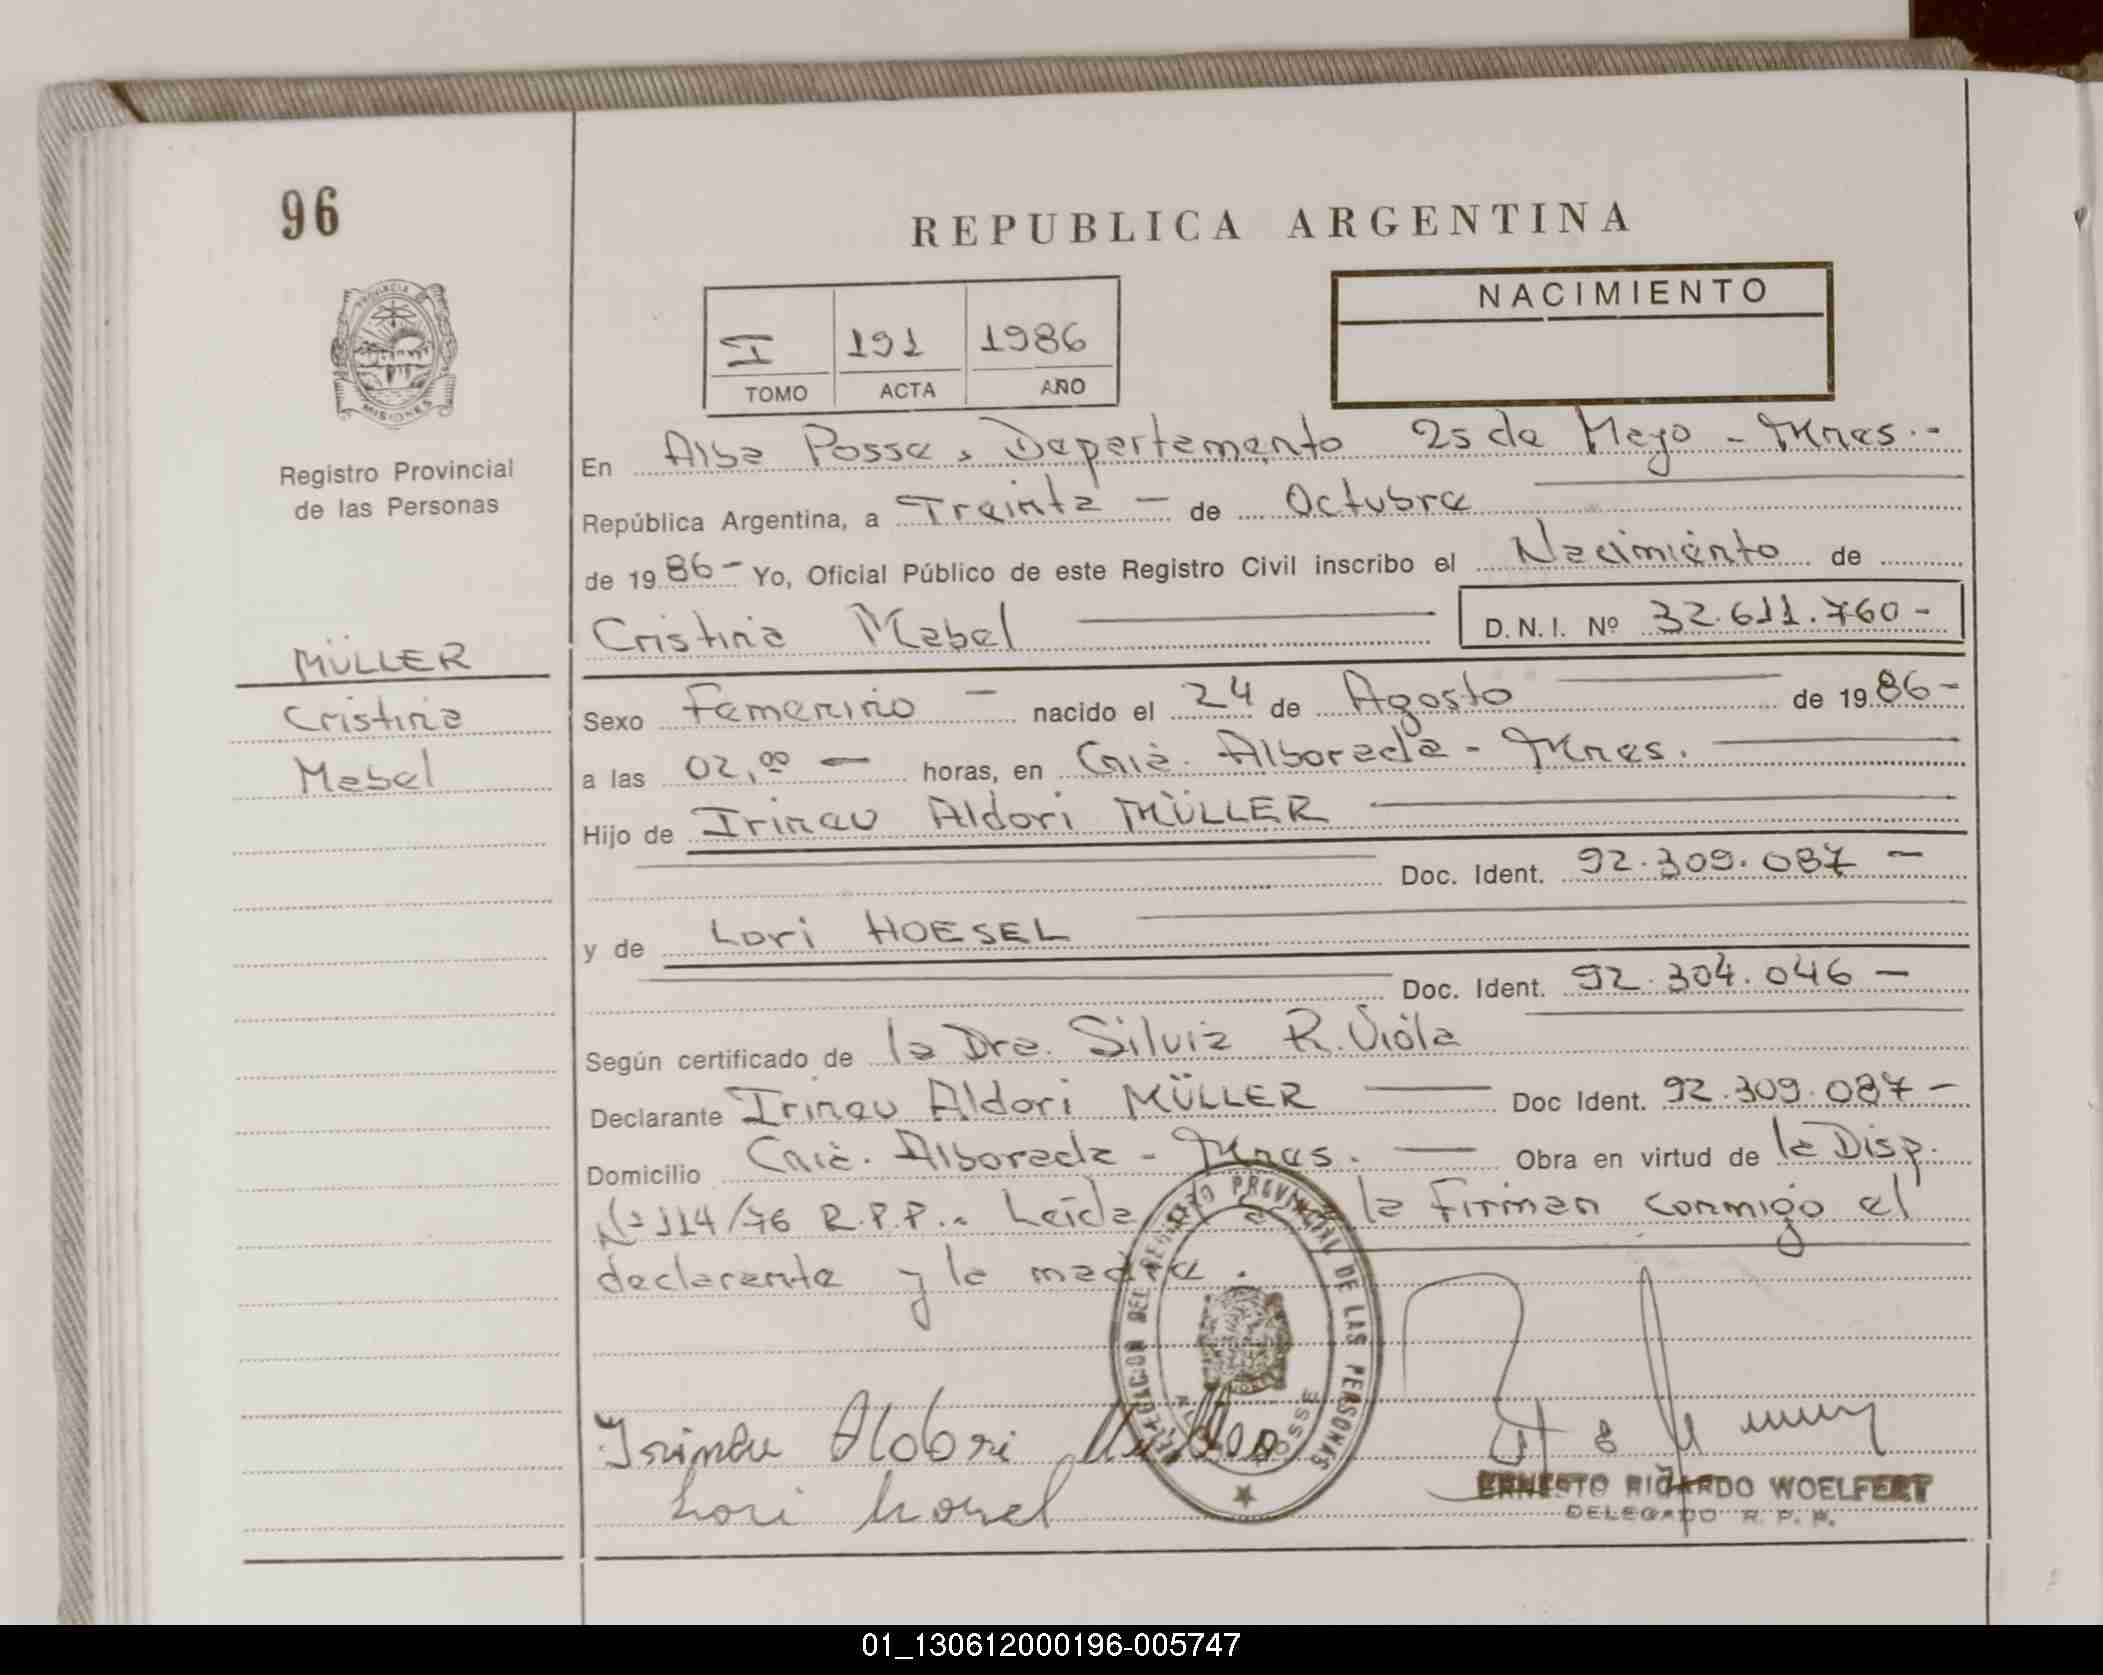 96
REPUBLICA ARGENTINA
NACIMIENTO
I 191 1986
TOMO ACTA AÑO
PROVINCIA DE
MISIONES
Registro Provincial
de las Personas
MÜLLER
Cristina
Mabel
En Alba Posse, Departamento 25 de Mayo - Mnes.-
República Argentina, a Treinta - de Octubre
de 1986 - Yo, Oficial Público de este Registro Civil inscribo el Nacimiento de
Cristina Mabel D.N.I. Nº 32.611.760-
Sexo Femenino - nacido el 24 de Agosto de 1986-
a las 02,00 - horas, en Cnia. Alborada - Mnes.
Hijo de Irineu Aldori MÜLLER
Doc. Ident. 92.309.087 -
y de Lori HOESEL
Doc. Ident. 92.304.046 -
Según certificado de la Dra. Silvia R. Viola
Declarante Irineu Aldori MÜLLER Doc Ident. 92.309.087-
Domicilio Cnia. Alborada - Mnes. - Obra en virtud de la Disp.
Nº 114/76 R.P.P.. Leída la Firman conmigo el
declarante y la madre.
DELEGACION DEL REGISTRO PROVINCIAL DE LAS PERSONAS
POSSE
Irineu Aldori Müller
Lori
ERNESTO RICARDO WOELFERT
DELEGADO R. P. P.
01_130612000196-005747